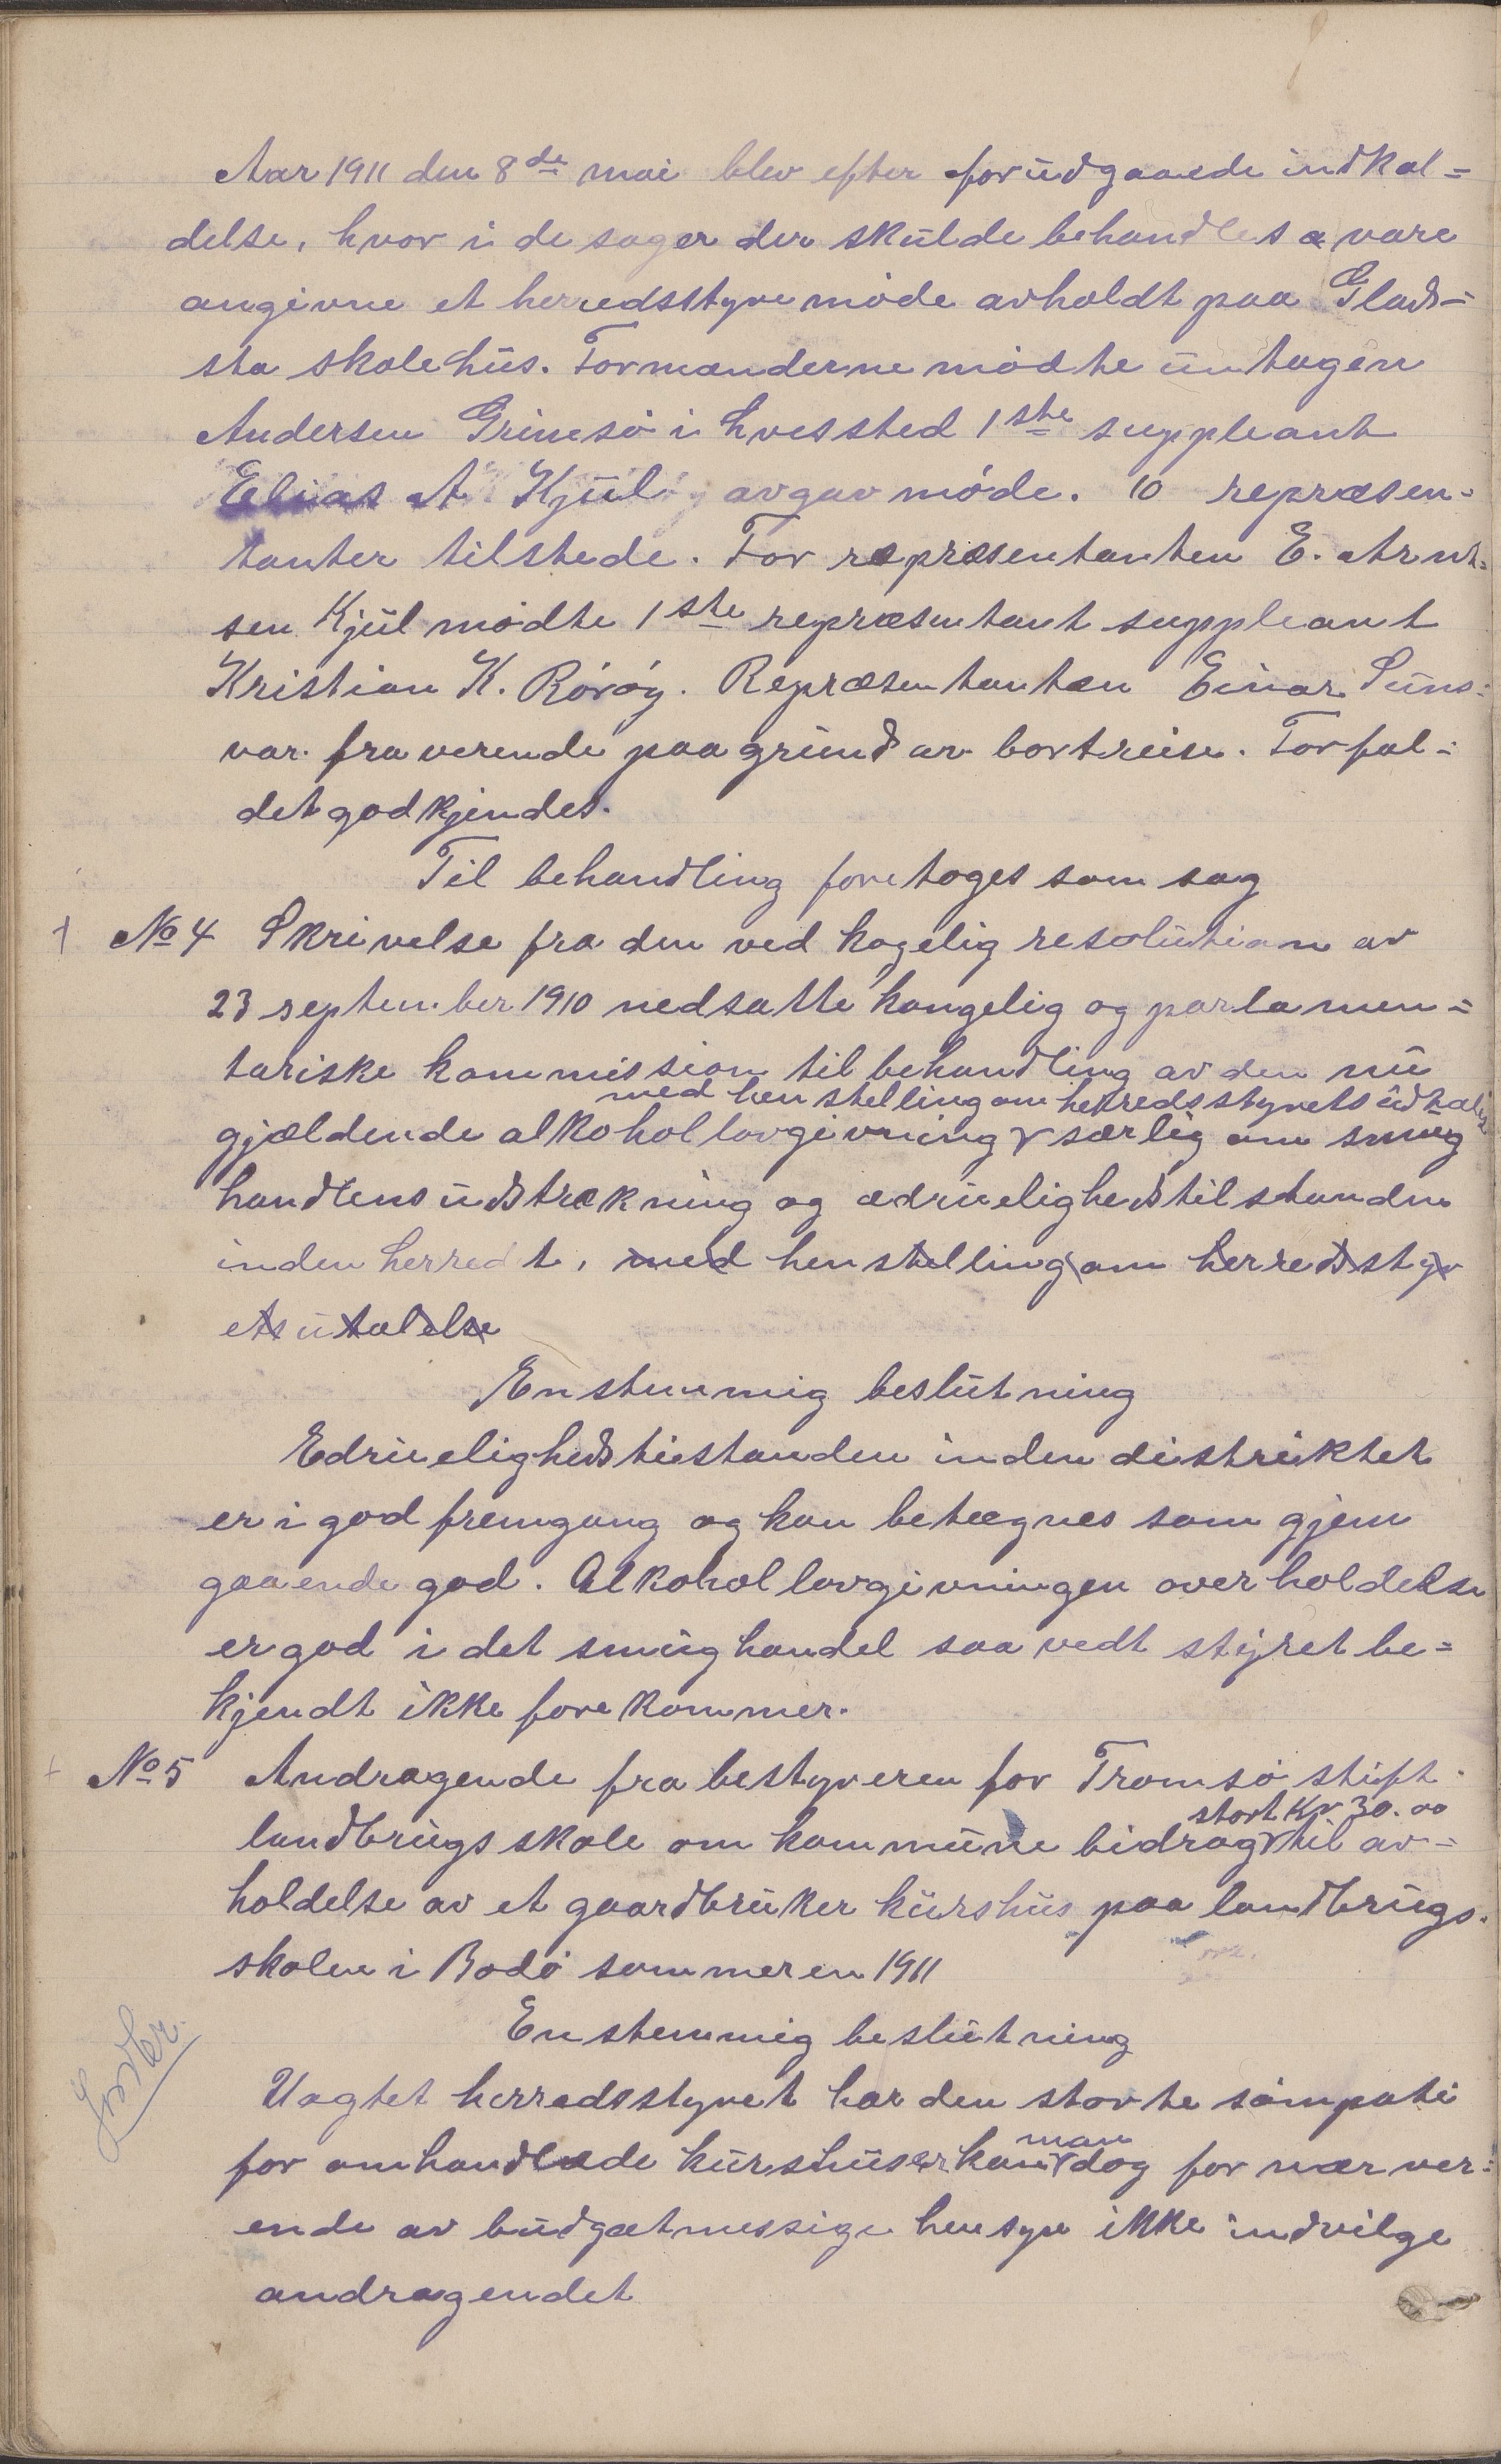 Aar 1911 den 8de mai blev efter forudgaaede indkal=
delse, hvor i de sager der skulde behandles vare
angivne et herredsstyremöde avholdt paa Glad=
sta skolehus. Formænderne mödte untagen
Andersen Grimsö i hvessted 1ste suppleant
Elias A Kjul avgav möde. 10 repræsen=
tanter tilstede. For repræsentanten E. Arnt=
sen Kjul mödte 1ste repræsentant suppleant
Kristian K. Röröy. Repræsentanten Einar Suns=
var fraverende paa grund av bortreise. Forfal=
det godkjendes.
Til behandling foretoges som sag
+ No 4 Skrivelse fra den ved kogelig resolution av
23 september 1910 nedsatte kongelig og parlamen=
tariske kommission til behandling av den nu
med henstelling om herredsstyrets udtalelse
gjældende alkohollovgivning særlig om smug
handlens udstrækning og ædruelighedstilstanden
inden herredt, med henstelling om herredsstyr
ets utalelse
Enstemmig beslutning
Edruelighedstiestanden inden distriktet
er i god fremgang og kan betegnes som gjem
gaaende god. Alkohollovgivningen overholdelse
er god i det smughandel saavedt styret be=
kjendt ikke forekommer.
+ No 5 Andragende fra bestyreren for Tromsö stift
stort Kr 30.00
landbrugsskole om kommune bidrag til av=
holdelse av et gaardbruker kurshus paa landbrugs.
skolen i Bodö sommeren 1911
Enstemmig beslutning
Uagtet herredsstyret har den storte sömpati
man
for omhandlede kurshuser kan dog for nærver=
ende av budgætmessige hensyn ikke indvilge
andragendet